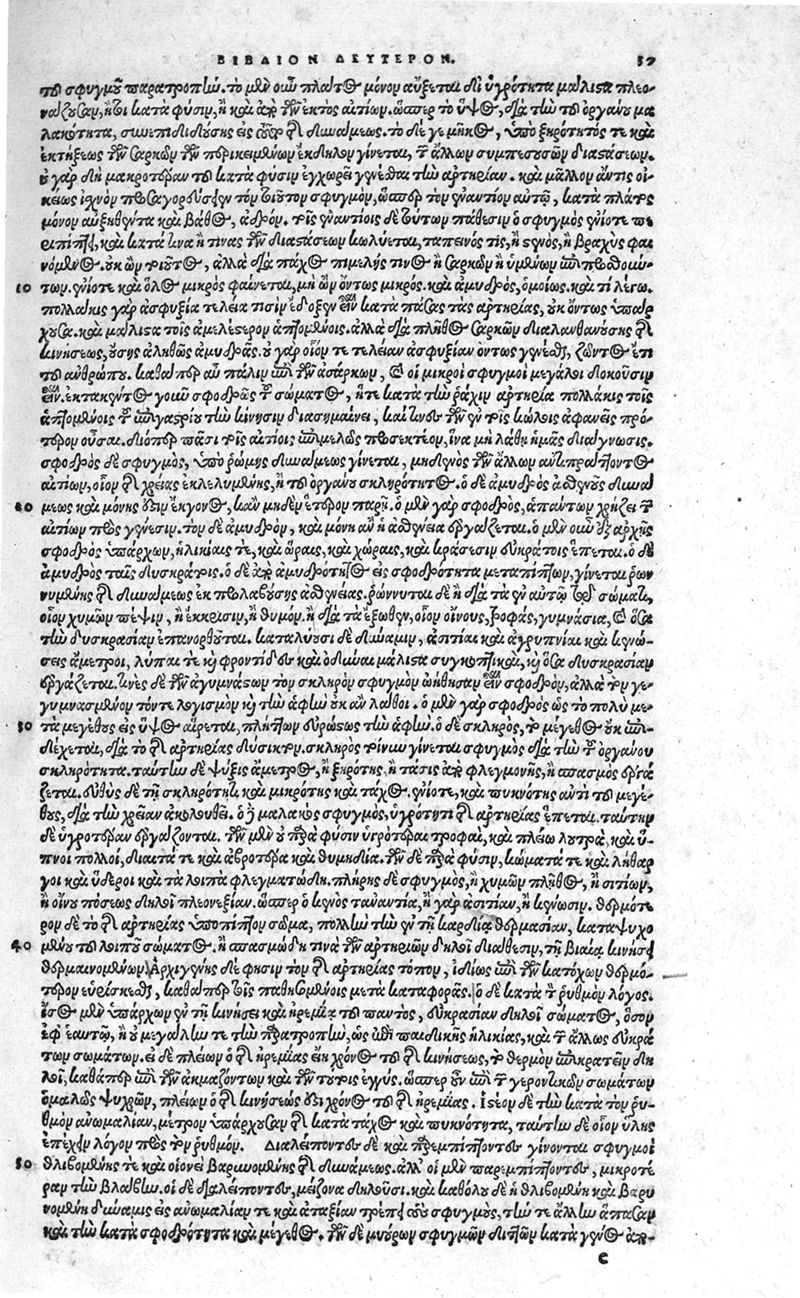 ΒΙΒΛΙΟΝ ΔΕΥΤΕΡΟΝ. 17
τοῦ σφυγμοῦ παρατροπήν. τὸ μὲν οὖν πλάτος μόνον αὔξεται δι' ὑγρότητα μάλιστα πλεο-
νάζουσαν, ἤτοι κατὰ φύσιν, ἢ καὶ ἀπὸ τῶν ἐκτὸς αἰτίων. ὥσπερ τὸ ὕψος, διὰ τὴν τοῦ ὀργάνου μα
λακότητα, συνεπιδιδούσης εἰς τῆς δυνάμεως. τὸ δέ γε μῆκος, ὑπὸ ξηρότητός τε καὶ
ἐκτήξεως τῶν σαρκῶν τῶν περικειμένων ἔκδηλον γίνεται, τῶν ἄλλων συμπεσουσῶν διαστάσεων.
οὐ γὰρ δὴ μακροτέραν τοῦ κατὰ φύσιν ἐγχωρεῖ γενέσθαι τὴν ἀρτηρίαν. καὶ μᾶλλον ἄν τις οἰ
κείως ἰσχνὸν προσαγορεύσειεν τὸν τοιοῦτον σφυγμὸν, ὥσπερ τὸν ἐναντίον αὐτῷ, κατὰ πλάτος
μόνον αὐξηθέντα καὶ βάθος, ἁδρόν. τοῖς ἐναντίοις δὲ τούτων πάθεσιν ὁ σφυγμὸς ἐνίοτε πε
ριπίπτει, καὶ κατὰ τινα ἤ τινας τῶν διαστάσεων κωλύεται, ταπεινός τις, ἢ στενὸς, ἢ βραχὺς φαι
νόμενος. οὐκ ὢν τοιοῦτος, ἀλλὰ διὰ πάχος πιμελῆς τινος ἢ σαρκῶν ἢ ὑμένων ἐπιπροσθούν-
10 των. ἐνίοτε καὶ ὅλος μικρὸς φαίνεται, μὴ ὢν ὄντως μικρός. καὶ ἀμυδρὸς, ὁμοίως. καὶ τί λέγω.
πολλάκις γὰρ ἀσφυξία τελεία τισὶν ἔδοξεν εἶναι κατὰ πάσας τὰς ἀρτηρίας, οὐκ ὄντως ὑπάρ
χουσα. καὶ μάλιστα τοῖς ἀμελέστερον ἁπτομένοις. ἀλλὰ διὰ πλῆθος σαρκῶν διαλανθανούσης τῆς
κινήσεως, οὔσης ἀληθῶς ἀμυδρᾶς. οὐ γὰρ οἷόν τε τελείαν ἀσφυξίαν ὄντως γενέσθαι, ζῶντος ἔτι
τοῦ ἀνθρώπου. καθάπερ αὖ πάλιν ἐπὶ τῶν ἀσάρκων, καὶ οἱ μικροὶ σφυγμοὶ μεγάλοι δοκοῦσιν
εἶναι. ἐκτακέντος γοῦν σφοδρῶς τοῦ σώματος, ἥτε κατὰ τὴν ῥάχιν ἀρτηρία πολλάκις τοῖς
ἁπτομένοις τοῦ ἐπιγαστρίου τὴν κίνησιν διασημαίνει, καί τινες τῶν ἐν τοῖς κώλοις ἀφανεῖς πρό-
τερον οὖσαι. διόπερ πᾶσι τοῖς αἰτίοις ἐπιμελῶς προσεκτέον, ἵνα μὴ λάθῃ ἡμᾶς διάγνωσις.
σφοδρὸς δὲ σφυγμὸς, ὑπὸ ῥώμης δυνάμεως γίνεται, μηδενὸς τῶν ἄλλων ἀντιπράττοντος
αἰτίων, οἷον τῆς χρείας ἐκλελυμένης, ἢ τοῦ ὀργάνου σκληρότητος. ὁ δὲ ἀμυδρὸς ἀσθενοῦς δυνά
20 μεως καὶ μόνης ἐστὶν ἔκγονον, κἂν μηδὲν ἕτερον παρῇ. ὁ μὲν γὰρ σφοδρὸς, ἁπάντων χρῄζει τῶν
αἰτίων πρὸς γένεσιν. τὸν δὲ ἀμυδρὸν, καὶ μόνη ἂν ἡ ἀσθένεια ἐργάζεται. ὁ μὲν οὖν ἐξ ἀρχῆς
σφοδρὸς ὑπάρχων, ἡλικίαις τε, καὶ ὥραις, καὶ χώραις, καὶ κράσεσιν εὐκράτοις ἕπεται. ὁ δὲ
ἀμυδρὸς ταῖς δυσκράτοις. ὁ δὲ ἀπὸ ἀμυδρότητος εἰς σφοδρότητα μεταπίπτων, γίνεται ῥων
νυμένης τῆς δυνάμεως ἐκ προλαβούσης ἀσθενείας. ῥώννυται δὲ ἢ διὰ τὰ ἐν αὐτῷ τῷ σώματι,
οἷον χυμῶν πέψιν, ἢ ἔκκρισιν, ἢ θυμόν. ἢ διὰ τὰ ἔξωθεν, οἷον οἴνους, τροφὰς, γυμνάσια, καὶ ὅσα
τὴν δυσκρασίαν ἐπανορθοῦται. καταλύουσι δὲ δύναμιν, ἀσιτίαι καὶ ἀγρυπνίαι καὶ κενώ-
σεις ἄμετροι, λύπαι τε καὶ φροντίδες καὶ ὀδύναι μάλιστα συγκοπτικαὶ, καὶ ὅσα δυσκρασίαν
ἐργάζεται. τινὲς δὲ τῶν ἀγυμνάστων τὸν σκληρὸν σφυγμὸν ᾠήθησαν εἶναι σφοδρὸν, ἀλλὰ τὸν γε
γυμνασμένον τόν τε λογισμὸν καὶ τὴν ἁφὴν οὐκ ἂν λάθοι. ὁ μὲν γὰρ σφοδρὸς ὡς τὸ πολὺ με-
30 τὰ μεγέθους εἰς ὕψος αἴρεται, πλήττων εὐρώστως τὴν ἁφήν. ὁ δὲ σκληρὸς, τὸ μέγεθος οὐκ ἐπι-
δέχεται, διὰ τὸ τῆς ἀρτηρίας δύσεικτον. σκληρὸς τοίνυν γίνεται σφυγμὸς διὰ τὴν τοῦ ὀργάνου
σκληρότητα. ταύτην δὲ ψῦξις ἄμετρος, ἢ ξηρότης, ἢ τάσις ἀπὸ φλεγμονῆς, ἢ σπασμὸς ἐργά
ζεται. εὐθὺς δὲ τῇ σκληρότητι καὶ μικρότης καὶ τάχος. ἐνίοτε, καὶ πυκνότης ἀντὶ τοῦ μεγέ-
θους, διὰ τὴν χρείαν ἀκολουθεῖ. ὁ δὲ μαλακὸς σφυγμὸς, ὑγρότητι τῆς ἀρτηρίας ἕπεται. ταύτην
δὲ ὑγροτέραν ἐργάζονται. τῶν μὲν οὐ παρὰ φύσιν ὑγρότεραι τροφαὶ, καὶ πλείω λουτρὰ, καὶ ὕ-
πνοι πολλοὶ, δίαιτά τε καὶ ἁβροτέρα καὶ θυμηδία. τῶν δὲ παρὰ φύσιν, κώματά τε καὶ λήθαρ
γοι καὶ ὕδεροι καὶ τὰ λοιπὰ φλεγματώδη. πλήρης δὲ σφυγμὸς, ἢ χυμῶν πλῆθος, ἢ σιτίων,
ἢ οἴνου πόσεως δηλοῖ πλεονεξίαν. ὥσπερ ὁ κενὸς τἀναντία, ἢ γὰρ ἀσιτίαν, ἢ κένωσιν. θερμότε
ρον δὲ τὸ τῆς ἀρτηρίας ὑποπίπτον σῶμα, πολλὴν τὴν ἐν τῇ καρδίᾳ θερμασίαν, καταψυχο
40 μένου τοῦ λοιποῦ σώματος. ἢ σπασμώδη τινὰ τῶν ἀρτηριῶν δηλοῖ διάθεσιν, τῇ βιαίᾳ κινήσει
θερμαινομένων. Ἀρχιγένης δέ φησιν τὸν τῆς ἀρτηρίας τόπον, ἰδίως ἐπὶ τῶν κατόχων θερμό-
τερον εὑρίσκεσθαι, καθάπερ τοῖς παθουμένοις μετὰ καταφορᾶς. ὁ δὲ κατὰ τὸν ῥυθμὸν λόγος.
ἴσος μὲν ὑπάρχων ἐν τῇ κινήσει καὶ ἠρεμίᾳ τοῦ παντὸς, εὐκρασίαν δηλοῖ σώματος, ὅσον
ἐφ' ἑαυτῷ, ἢ οὐ μεγάλην τε τὴν παρατροπὴν, ὡς ἐπὶ παιδικῆς ἡλικίας, καὶ τῶν ἄλλως εὐκρά
των σωμάτων. εἰ δὲ πλείων ὁ τῆς ἠρεμίας εἴη χρόνος τοῦ τῆς κινήσεως, τὸ θερμὸν ἐπικρατεῖν δη
λοῖ, καθάπερ ἐπὶ τῶν ἀκμαζόντων καὶ τῶν τούτοις ἐγγύς. ὥσπερ οὖν ἐπὶ τῶν γεροντικῶν σωμάτων
ὁμαλῶς ψυχρῶν, πλείων ὁ τῆς κινήσεώς ἐστι χρόνος τοῦ τῆς ἠρεμίας. Ἰστέον δὲ τὴν κατὰ τὸν ῥυ-
θμὸν ἀνωμαλίαν, μέτρον ὑπάρχουσαν τῆς κατὰ τάχος καὶ πυκνότητα, ταύτην δὲ οἷον ὕλης
ἐπέχειν λόγον πρὸς τὸν ῥυθμόν. Διαλείποντες δὲ καὶ παρεμπίπτοντες γίνονται σφυγμοὶ
50 θλιβομένης τε καὶ οἱονεὶ βαρυνομένης τῆς δυνάμεως. ἀλλ' οἱ μὲν παρεμπίπτοντες, μικροτέ
ραν τὴν βλάβην. οἱ δὲ διαλείποντες, μείζονα δηλοῦσι. καὶ καθόλου δὲ ἡ θλιβομένη καὶ βαρυ
νομένη δύναμις εἰς ἀνωμαλίαν τε καὶ ἀταξίαν τρέπει τοὺς σφυγμοὺς, τήν τε ἄλλην ἅπασαν
καὶ τὴν κατὰ σφοδρότητα καὶ μέγεθος. τῶν δὲ μυούρων σφυγμῶν διττῶν κατὰ γένος ἀπο-
c